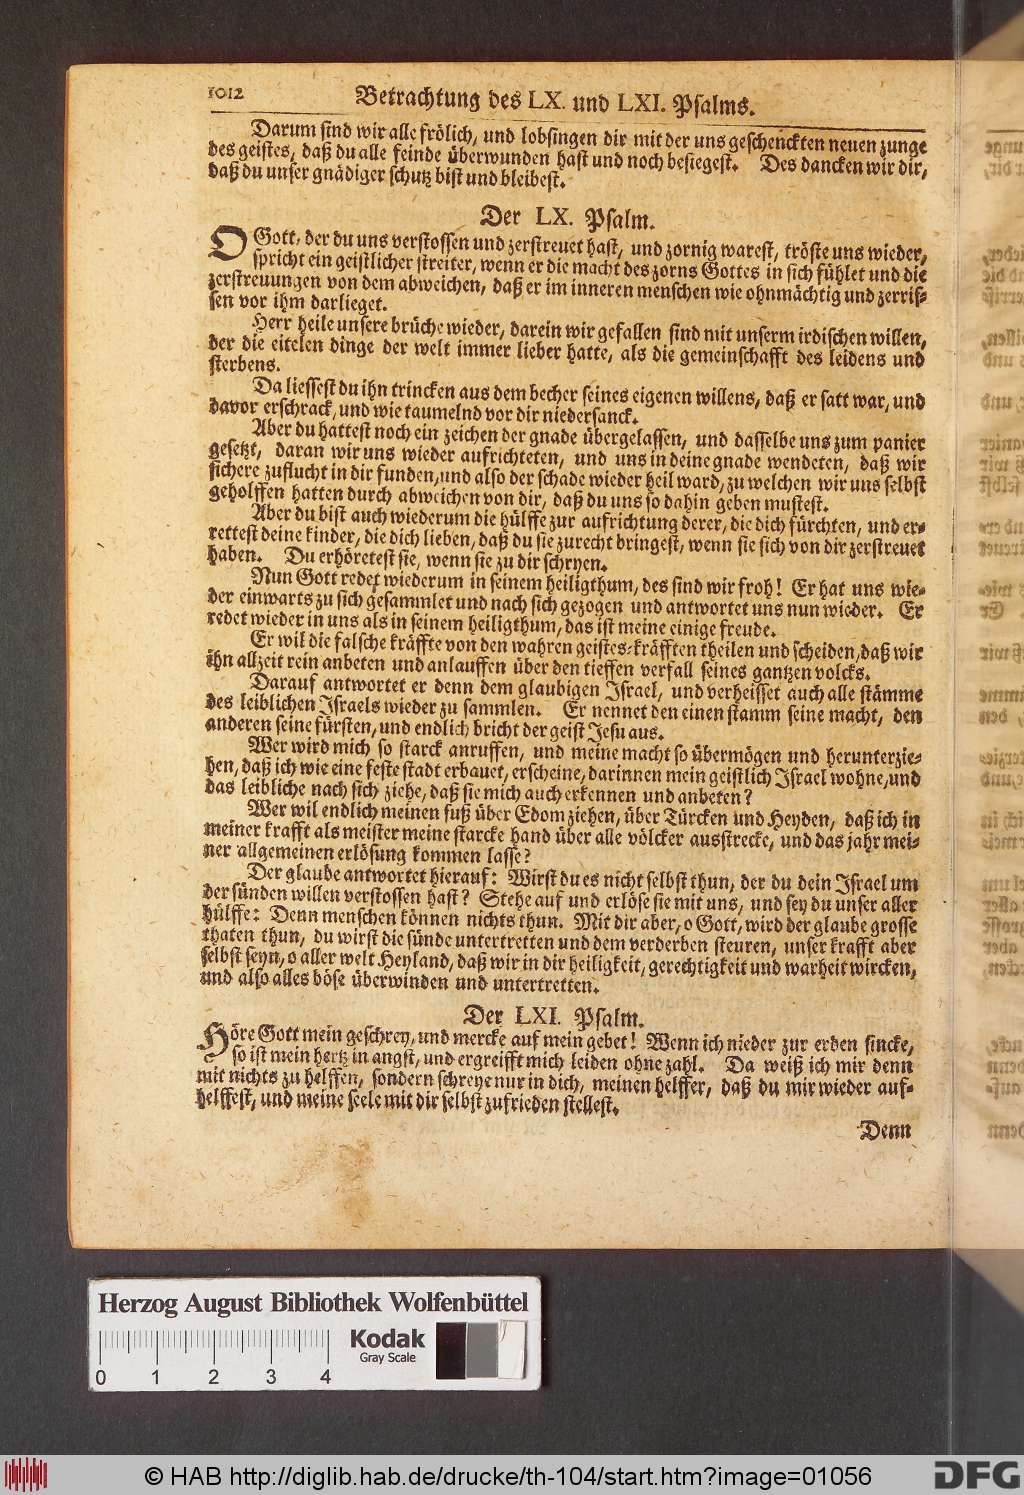 1012 Betrachtung des LX. und LXI. Psalms.
Darum sind wir alle frölich, und lobsingen dir mit der uns geschenckten neuen zunge
des geistes, daß du alle feinde überwunden hast und noch besiegest. Des dancken wir dir,
daß du unser gnädiger schutz bist und bleibest.
Der LX. Psalm.
O Gott, der du uns verstossen und zerstreuet hast, und zornig warest, tröste uns wieder,
spricht ein geistlicher streiter, wenn er die macht des zorns Gottes in sich fühlet und die
zerstreuungen von dem abweichen, daß er im inneren menschen wie ohnmächtig und zerris-
sen vor ihm darlieget.
Herr heile unsere brüche wieder, darein wir gefallen sind mit unserm irdischen willen,
der die eitelen dinge der welt immer lieber hatte, als die gemeinschafft des leidens und
sterbens.
Da liessest du ihn trincken aus dem becher seines eigenen willens, daß er satt war, und
davor erschrack, und wie taumelnd vor dir niedersanck.
Aber du hattest noch ein zeichen der gnade übergelassen, und dasselbe uns zum panier
gesetzt, daran wir uns wieder aufrichteten, und uns in deine gnade wendeten, daß wir
sichere zuflucht in dir funden, und also der schade wieder heil ward, zu welchen wir uns selbst
geholffen hatten durch abweichen von dir, daß du uns so dahin geben mustest.
Aber du bist auch wiederum die hülffe zur aufrichtung derer, die dich fürchten, und er-
rettest deine kinder, die dich lieben, daß du sie zurecht bringest, wenn sie sich von dir zerstreuet
haben. Du erhöretest sie, wenn sie zu dir schryen.
Nun Gott redet wiederum in seinem heiligthum, des sind wir froh! Er hat uns wie-
der einwarts zu sich gesammlet und nach sich gezogen und antwortet uns nun wieder. Er
redet wieder in uns als in seinem heiligthum, das ist meine einige freude.
Er wil die falsche kräffte von den wahren geistes-kräfften theilen und scheiden, daß wir
ihn allzeit rein anbeten und anlauffen über den tieffen verfall seines gantzen volcks.
Darauf antwortet er denn dem glaubigen Israel, und verheisset auch alle stämme
des leiblichen Israels wieder zu sammlen. Er nennet den einen stamm seine macht, den
anderen seine fürsten, und endlich bricht der geist Jesu aus.
Wer wird mich so starck anruffen, und meine macht so übermögen und herunterzie-
hen, daß ich wie eine feste stadt erbauet, erscheine, darinnen mein geistlich Israel wohne, und
das leibliche nach sich ziehe, daß sie mich auch erkennen und anbeten?
Wer wil endlich meinen fuß über Edom ziehen, über Türcken und Heyden, daß ich in
meiner krafft als meister meine starcke hand über alle völcker ausstrecke, und das jahr mei-
ner allgemeinen erlösung kommen lasse?
Der glaube antwortet hierauf: Wirst du es nicht selbst thun, der du dein Israel um
der sünden willen verstossen hast? Stehe auf und erlöse sie mit uns, und sey du unser aller
hülffe: Denn menschen können nichts thun. Mit dir aber, o Gott, wird der glaube grosse
thaten thun, du wirst die sünde untertretten und dem verderben steuren, unser krafft aber
selbst seyn, o aller welt Heyland, daß wir in dir heiligkeit, gerechtigkeit und warheit wircken,
und also alles böse überwinden und untertretten.
Der LXI. Psalm.
Höre Gott mein geschrey, und mercke auf mein gebet! Wenn ich nieder zur erden sincke,
so ist mein hertz in angst, und ergreifft mich leiden ohne zahl. Da weiß ich mir denn
mit nichts zu helffen, sondern schreye nur in dich, meinen helffer, daß du mir wieder auf-
helffest, und meine seele mit dir selbst zufrieden stellest.
Denn
Herzog August Bibliothek Wolfenbüttel
Kodak
Gray Scale
0 1 2 3 4
© HAB http://diglib.hab.de/drucke/th-104/start.htm?image=01056
DFG